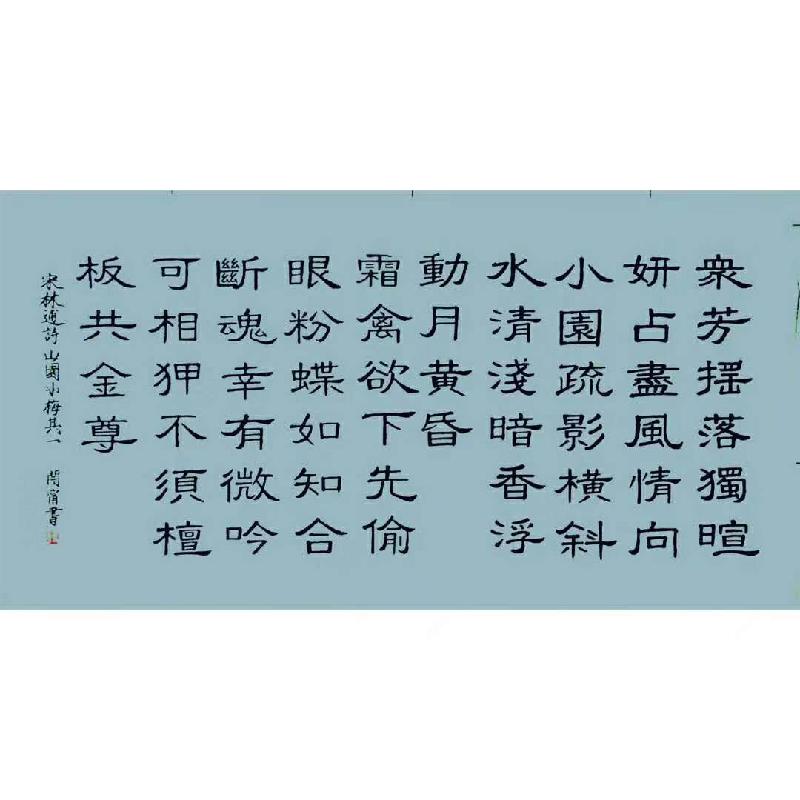 衆芳摇落獨暄
妍占盡風情向
小園疏影橫斜
水清淺暗香浮
動月黄昏
霜禽欲下先偷
眼粉蝶如知合
斷魂幸有微吟
可相狎不須檀
板共金尊
宋林逋詩山園小梅其一 閆甯書